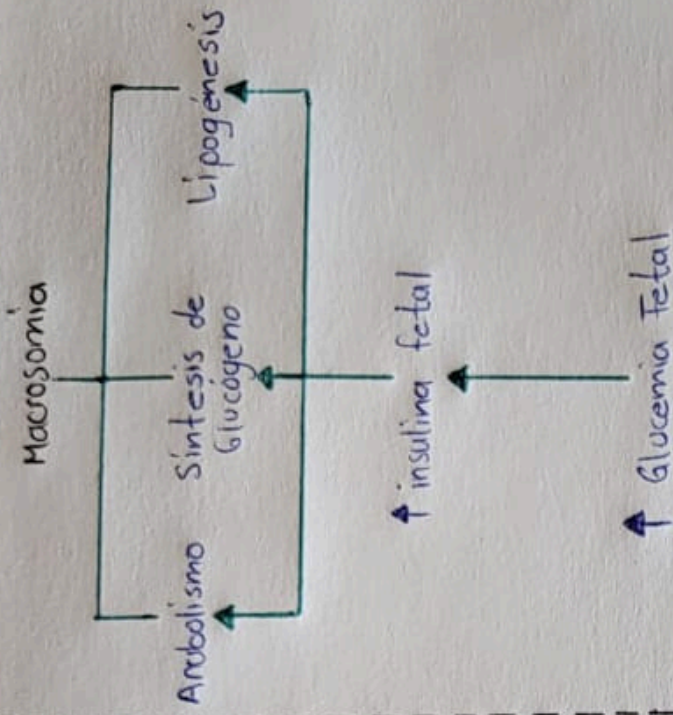 Macrosomia
Anabolismo
Síntesis de
Glucógeno
Lipogénesis
↑ insulina fetal
↑ Glucemia Fetal